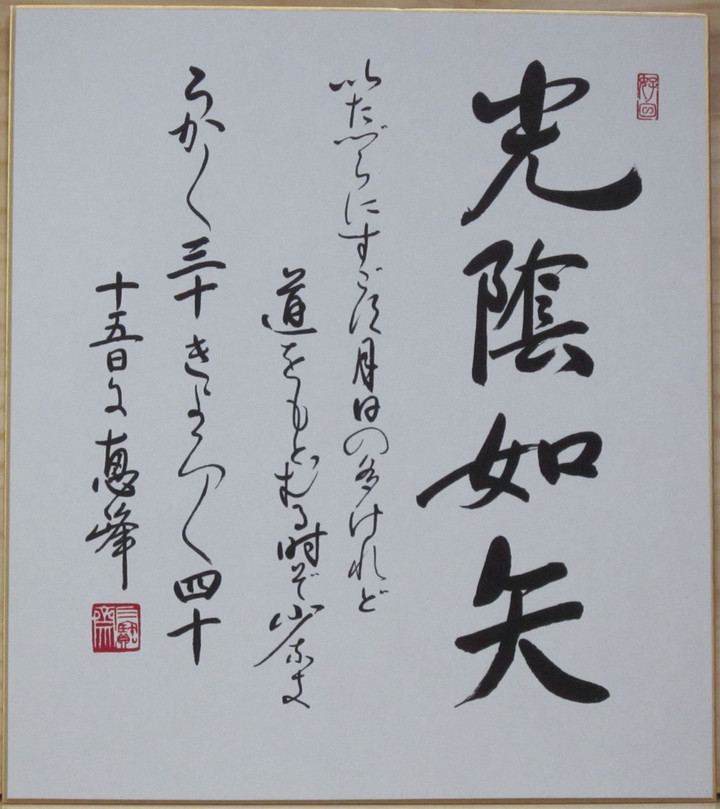 光陰如矢
いたづらにすごす月日の多けれど
道をもとむる時ぞ少なき
うか〱三十きょろ〱四十
十五日に 惠峰